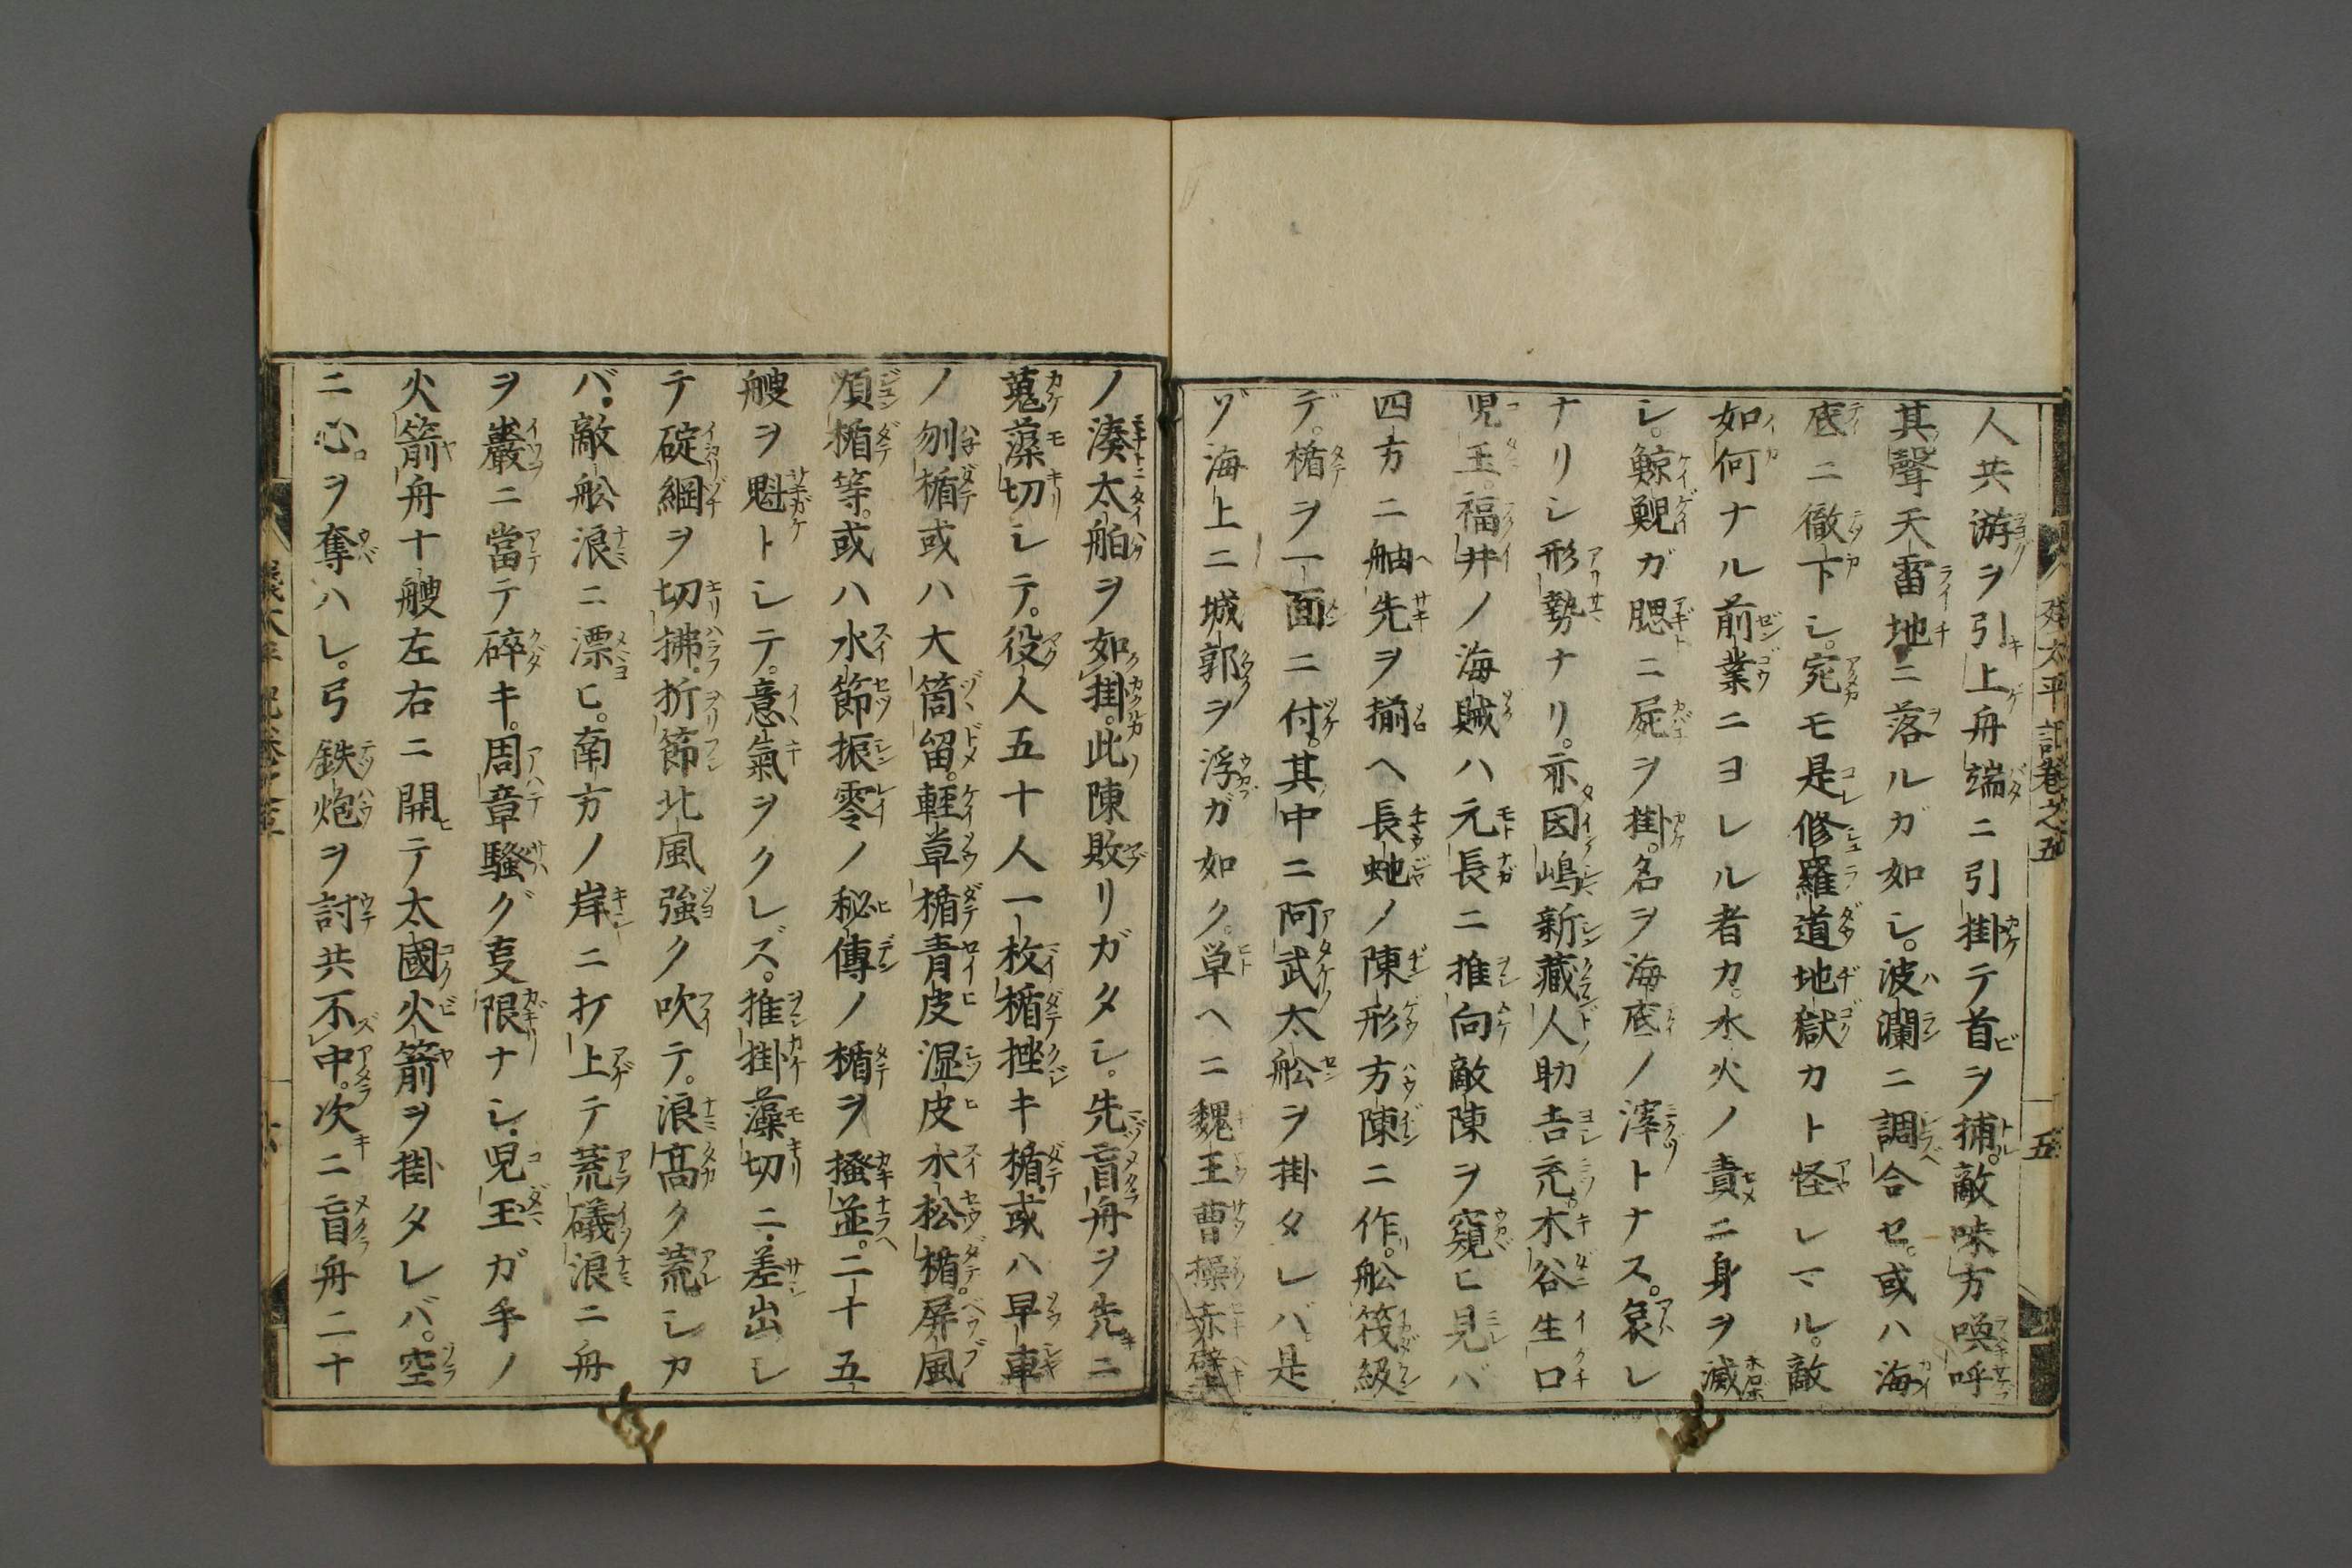 残太平記巻之五
五
人共游ヲ引上舟端ニ引掛テ首ヲ捕。敵味方喚呼
其聲天雷地ニ落ルガ如シ。波瀾ニ調合セ。或ハ海
底ニ徹下シ。宛モ是修羅道地獄カト怪シマル。敵
如何ナル前業ニヨレル者カ。水火ノ責ニ身ヲ滅
シ。鯨鯢ガ腮ニ屍ヲ掛。名ヲ海底ノ滓トナス。哀レ
ナリシ形勢ナリ。亦因嶋新藏人助吉充。木谷生口
児玉。福井ノ海賊ハ元長ニ推向敵陳ヲ窺ヒ見バ
四方ニ舳先ヲ揃ヘ長虵ノ陳形方陳ニ作。舩筏級
デ。楯ヲ一面ニ付。其中ニ阿武太舩ヲ掛タレバ是
ゾ海上ニ城郭ヲ浮ガ如ク。単ヘニ魏王曹操赤壁
ノ湊太舶ヲ如掛。此陳敗リガタシ。先盲舟ヲ先ニ
蒐藻切シテ。役人五十人一枚楯挫キ楯。或ハ早車
ノ刎楯或ハ大筒留。軽草楯青皮湿皮水松楯。屏風
順楯等。或ハ水節振零ノ秘傳ノ楯ヲ掻並。二十五
艘ヲ魁トシテ。意氣ヲクレズ。推掛藻切ニ差出シ
テ碇綱ヲ切拂。折節北風強ク吹テ。浪高ク荒シカ
バ。敵舩浪ニ漂ヒ。南方ノ岸ニ打上テ荒礒浪ニ舟
ヲ巖ニ當テ碎キ。周章騒グ叓限ナシ。児玉ガ手ノ
火箭舟十艘左右ニ開テ太國火箭ヲ掛タレバ。空
ニ心ヲ奪ハレ。弓鉄炮ヲ討共不中。次ニ盲舟二十